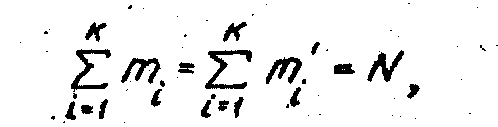 $$\sum_{i=1}^{K} m_i = \sum_{i=1}^{K} m_i' = N,$$